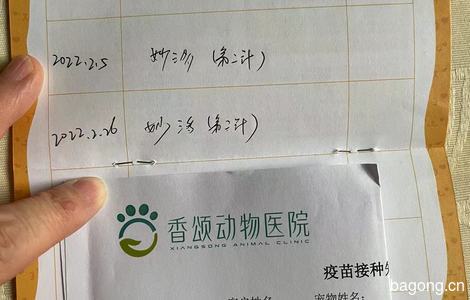 2022.2.5 妙三多(第二针)
2022.2.26 妙三多(第三针)
香颂动物医院
XIANGSONG ANIMAL CLINIC
疫苗接种
宠物姓名:
bagong.cn